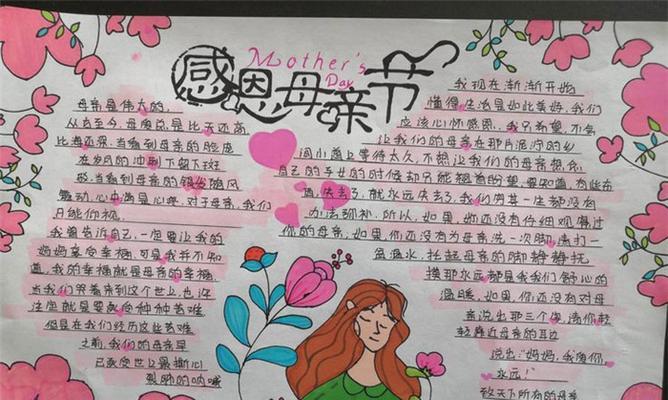 Mother's
Day
感恩母亲节
母亲是伟大的,
从古至今,母爱总是比天还高,
比海还深,当看到母亲的脸庞
在岁月的冲刷下留下斑
痕,当看到母亲的银发随风
飘动,心中满是心疼,对于母亲,我们
只能仰视,
我曾告诉自己,一定要让我的
妈妈享受幸福,可是我并不知
道,我的幸福就是母亲的幸福,
当我们哭着来到这个世上,也许
注定就是要来受种种苦难,
但是在我们经历这些苦难
之前,我们的母亲早
已承受世上最撕心
裂肺的呐喊
我现在渐渐开始
懂得,生活是如此美好,我们
应该心怀感恩,我只希望,不会
让我们的母亲在那片泥泞的乡
间小道上等待太久,不想让我们的母亲想念
自己的子女的时候却只能翘首盼望,要知道,有些东
西,失去了,就永远失去了,我们用其一生都没有
办法弥补,所以,如果,她还没有仔细观看过
你的母亲,如果,你还没有为母亲洗一次脚,请打一
盆温水,托起母亲的脚静静抚
摸那永远都是我们舒心的
温暖,如果,你还没有对母
亲说出那三个字,请你轻
轻靠近母亲的耳边
说出:“妈妈,我爱你,
永远!”
致天下所有的母亲